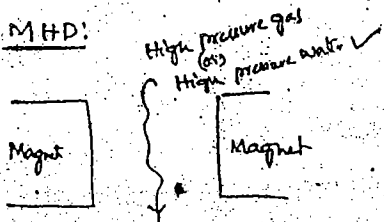 MHD:
High pressure gas
(or)
High pressure water ✓
Magnet
Magnet